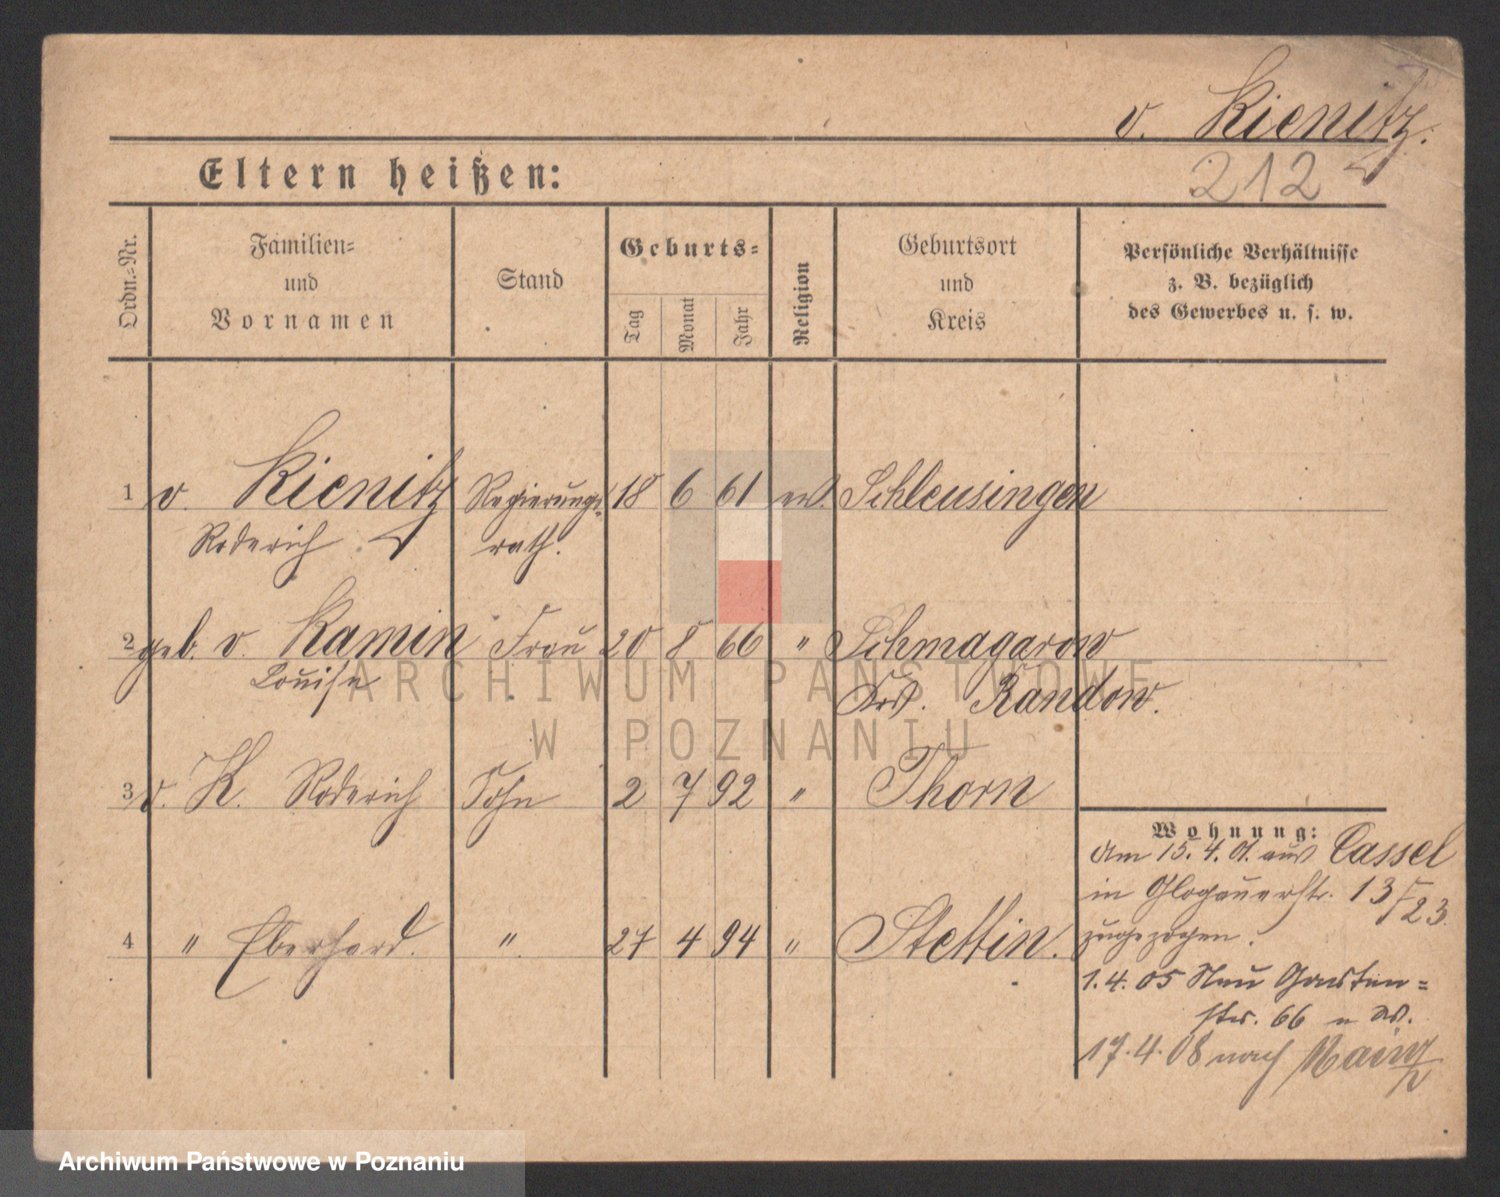 v. Kienitz.
212
Eltern heißen:
Ordn.-Nr.
Familien-
und
Vornamen
Stand
Geburts-
Tag
Monat
Jahr
Religion
Geburtsort
und
Kreis
Persönliche Verhältnisse
z. B. bezüglich
des Gewerbes u. s. w.
1 v. Kienitz Regierungs- 18 6 61 ev. Schleusingen
Roderich rath.
2 geb. v. Kamin Frau 20 8 66 " Schmagarow
Louise Krs. Randow.
3 v. K. Roderich Sohn 2 7 92 " Thorn
Wohnung:
Am 15. 4. 01. aus Cassel
in Glogauerstr. 13/23
zugezogen.
4 " Eberhard. " 27 4 94 " Stettin.
1. 4. 05 Neu Garten=
str. 66
17. 4. 08 nach Mainz
ARCHIWUM PAŃSTWOWE
W POZNANIU
Archiwum Państwowe w Poznaniu